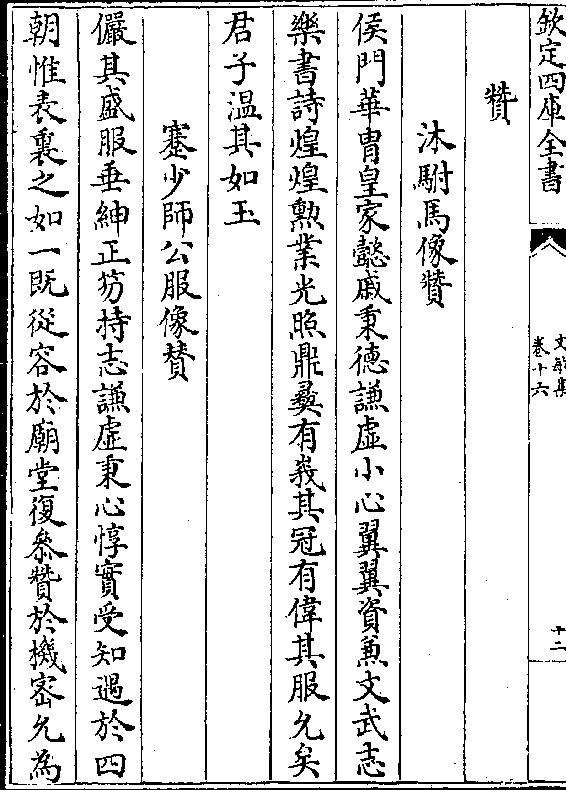 欽定四庫全書
文敏集
卷十六
十二
贊
沐駙馬像贊
侯門華冑皇家懿戚秉德謙虛小心翼翼資兼文武志
樂書詩煌煌勲業光照鼎彛有峩其冠有偉其服允矣
君子温其如玉
蹇少師公服像賛
儼其盛服垂紳正笏持志謙虛秉心惇實受知遇於四
朝惟表裏之如一既從容於廟堂復叅贊於機密允為